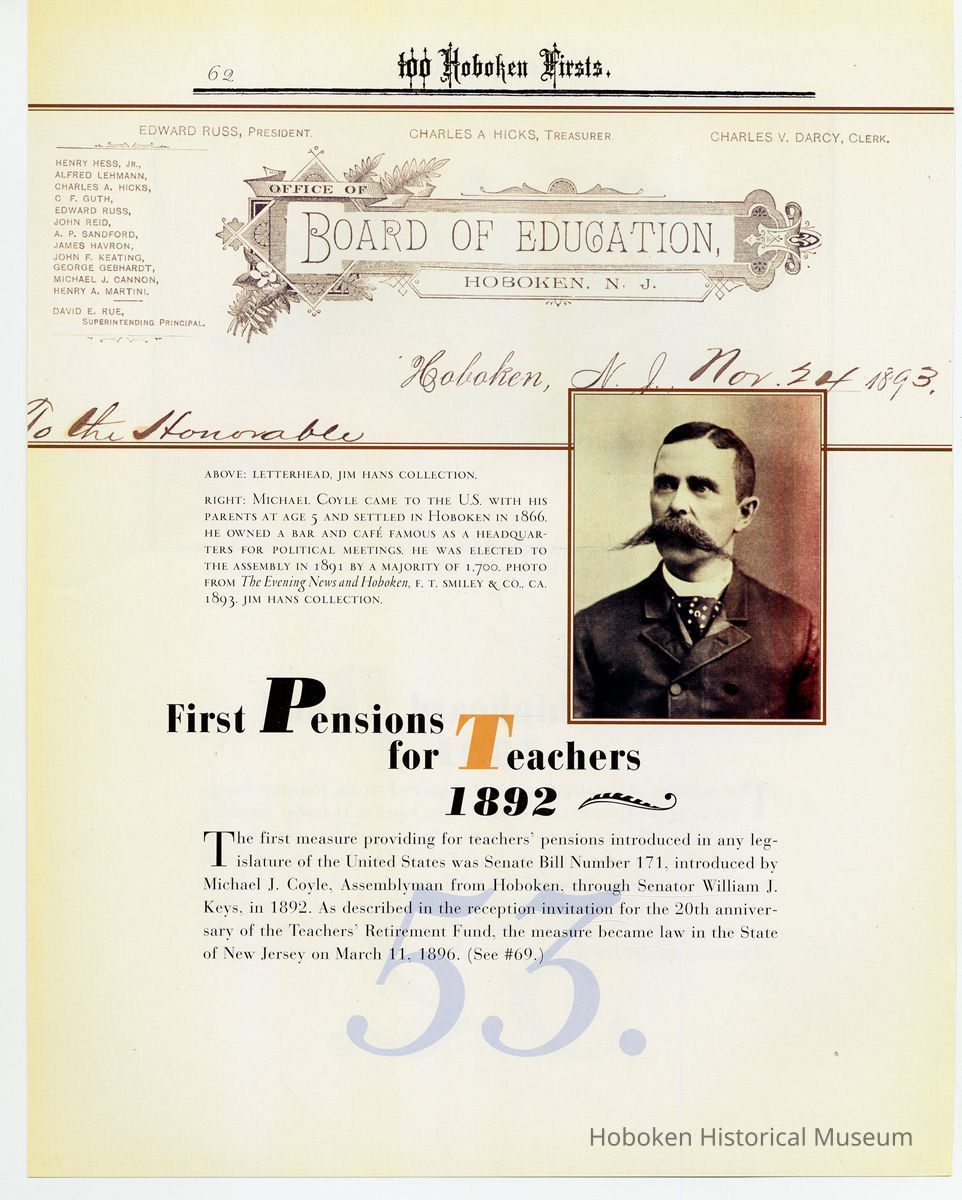 62
100 Hoboken Firsts.
EDWARD RUSS, PRESIDENT.
CHARLES A HICKS, TREASURER.
CHARLES V. DARCY, CLERK.
HENRY HESS, JR.,
ALFRED LEHMANN,
CHARLES A. HICKS,
C F. GUTH,
EDWARD RUSS,
JOHN REID,
A. P. SANDFORD,
JAMES HAVRON,
JOHN F. KEATING,
GEORGE GEBHARDT,
MICHAEL J. CANNON,
HENRY A. MARTINI.
DAVID E. RUE,
SUPERINTENDING PRINCIPAL.
OFFICE OF
BOARD OF EDUCATION,
HOBOKEN, N. J.
Hoboken, N. J. Nov. 24 1893.
To the Honorable
ABOVE: LETTERHEAD, JIM HANS COLLECTION.
RIGHT: MICHAEL COYLE CAME TO THE U.S. WITH HIS
PARENTS AT AGE 5 AND SETTLED IN HOBOKEN IN 1866.
HE OWNED A BAR AND CAFÉ FAMOUS AS A HEADQUAR-
TERS FOR POLITICAL MEETINGS. HE WAS ELECTED TO
THE ASSEMBLY IN 1891 BY A MAJORITY OF 1,700. PHOTO
FROM The Evening News and Hoboken, F. T. SMILEY & CO., CA.
1893. JIM HANS COLLECTION.
First Pensions
for Teachers
1892
The first measure providing for teachers' pensions introduced in any leg-
islature of the United States was Senate Bill Number 171, introduced by
Michael J. Coyle, Assemblyman from Hoboken, through Senator William J.
Keys, in 1892. As described in the reception invitation for the 20th anniver-
sary of the Teachers' Retirement Fund, the measure became law in the State
of New Jersey on March 11, 1896. (See #69.)
53.
Hoboken Historical Museum